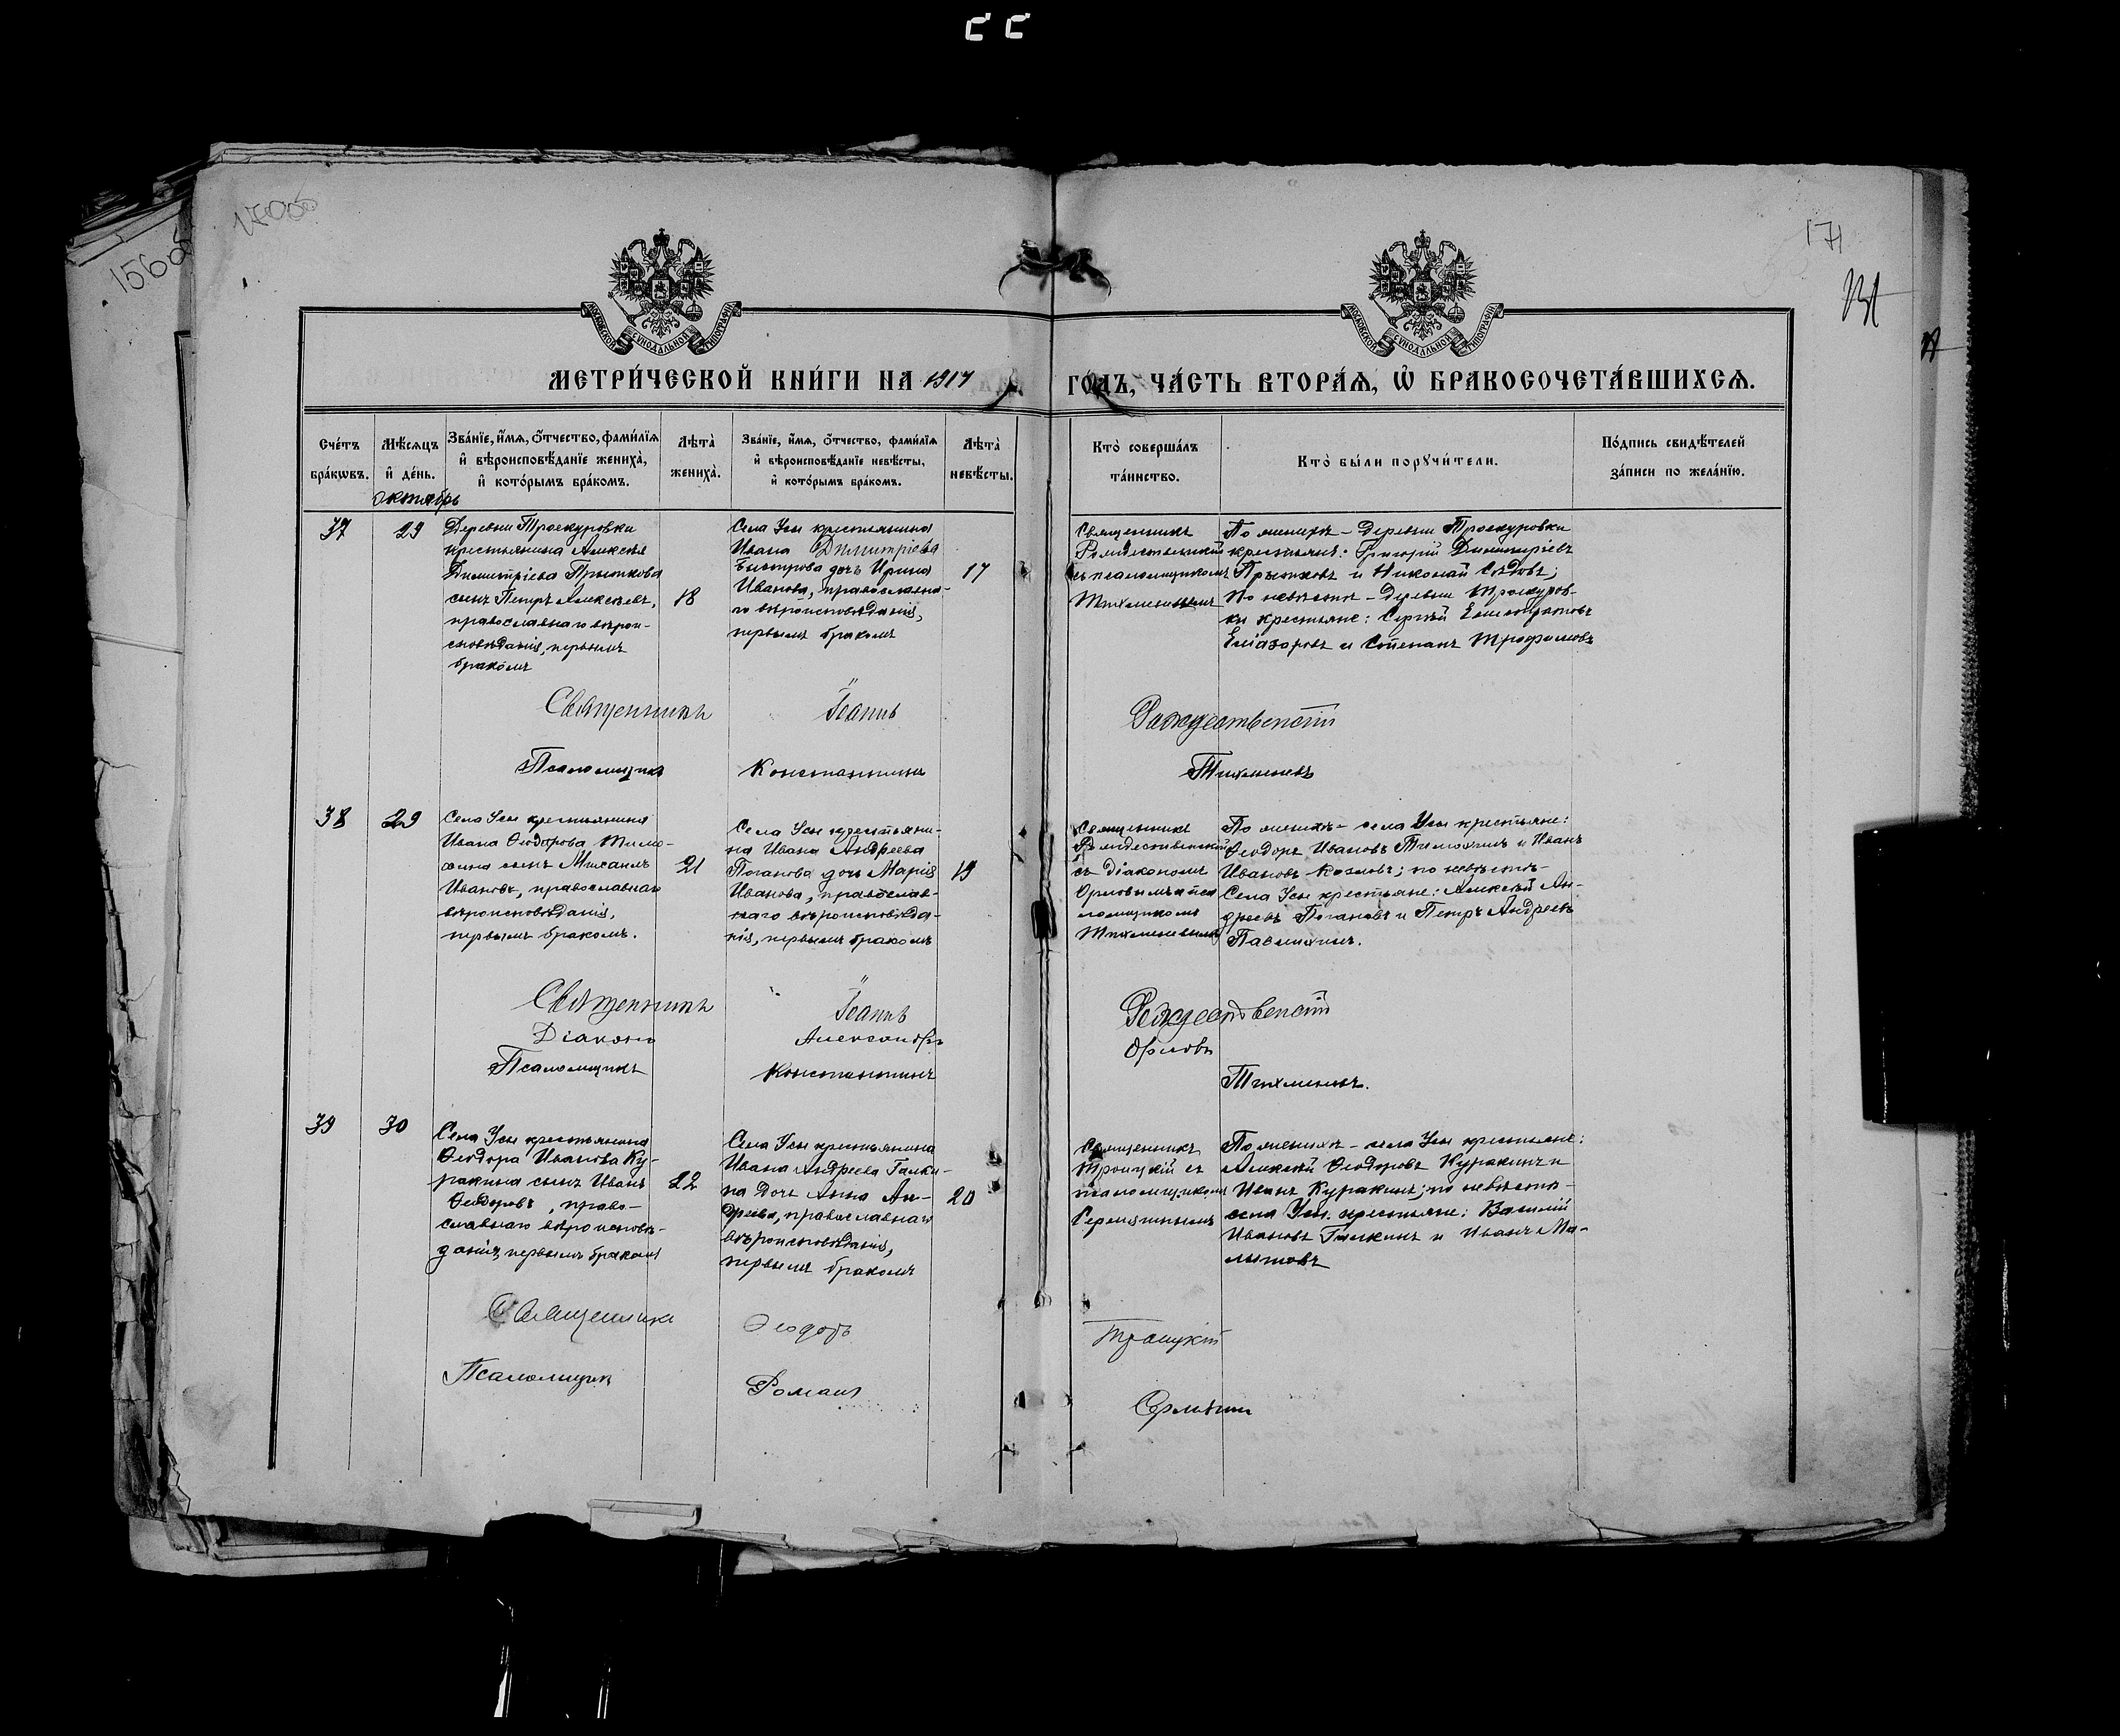 170об
156об
171
МОСКОВСКОЙ СУНОДАЛЬНОЙ ТИПОГРАФІИ
МОСКОВСКОЙ СУНОДАЛЬНОЙ ТИПОГРАФІИ
МЕТРИ́ЧЕСКОЙ КНИ́ГИ НА 1917 ГО́ДЪ, ЧА́СТЬ ВТОРА́Ѧ, Ѽ БРАКОСОЧЕТА́ВШИХСѦ.
Сче́тъ бра́кѡвъ.
Мѣ́сѧцъ и҆ де́нь.
Зва́нїе, и҆́мѧ, о҆́тчество, фами́лїѧ и҆ вѣроисповѣ́данїе жениха̀, и҆ кото́рымъ бра́комъ.
Лѣта̀ жениха̀.
Зва́нїе, и҆́мѧ, о҆́тчество, фами́лїѧ и҆ вѣроисповѣ́данїе невѣ́сты, и҆ кото́рымъ бра́комъ.
Лѣта̀ невѣ́сты.
Кто̀ соверша́лъ та́инство.
Кто̀ бы́ли порꙋчи́тели.
По́дпись свидѣ́телей за́писи по жела́нїю.
октябрь
37
29
Деревни Троекуровки
крестьянина Алексѣя
Димитріева Прыткова
сынъ Петръ Алексѣевъ,
православнаго вѣрои-
сповѣданія, первымъ
бракомъ
18
Села Усы крестьянина
Ивана Димитріева
дочь Ирина
Иванова, православна-
го вѣроисповѣданія,
первымъ бракомъ
17
Священникъ
Рождественскій
съ псаломщикомъ
Тихменевымъ
По женихѣ – Деревни Троекуровки
крестьяне: Григорій Димитріевъ
Прытковъ и Николай Сѣдовъ;
По невѣстѣ – Деревни Троекуров-
ки крестьяне: Сергѣй
и Степанъ Трофимовъ
Священникъ Іоаннъ Рождественскій
Псаломщикъ Константинъ Тихменевъ
38
29
Села Усы крестьянина
Ивана Ѳеодорова Тимо-
хина сынъ Михаилъ
Ивановъ, православнаго
вѣроисповѣданія,
первымъ бракомъ.
21
Села Усы крестьяни-
на Ивана Андреева
Поганова дочь Марія
Иванова, православ-
наго вѣроисповѣда-
нія, первымъ бракомъ
19
Священникъ
Рождественскій
съ діакономъ
Орловымъ и пса
ломщикомъ
Тихменевымъ
По женихѣ – села Усы крестьяне:
Ѳеодоръ Ивановъ Тимохинъ и Иванъ
Ивановъ Козловъ; по невѣстѣ –
Села Усы крестьяне: Алексѣй Ан-
дреевъ Погановъ и Петръ Андреевъ
Павлихинъ.
Священникъ Іоаннъ Рождественскій
Діаконъ Александръ Орловъ
Псаломщикъ Константинъ Тихменевъ.
39
30
Села Усы крестьянина
Ѳеодора Иванова Ку-
ракина сынъ Иванъ
Ѳеодоровъ, право-
славнаго вѣроисповѣ-
данія, первымъ бракомъ
22
Села Усы крестьянина
Ивана Андреева Галки-
на дочь Анна Ан-
дреева, православнаго
вѣроисповѣданія,
первымъ бракомъ
20
Священникъ
Троицкій съ
псаломщикомъ
По женихѣ – села Усы крестьяне:
Алексѣй Ѳеодоровъ Куракинъ и
Иванъ Куракинъ; по невѣстѣ –
села Усы крестьяне: Василій
Ивановъ Галкинъ и Иванъ Ма-
Священникъ Ѳеодоръ Троицкій
Псаломщикъ Романъ